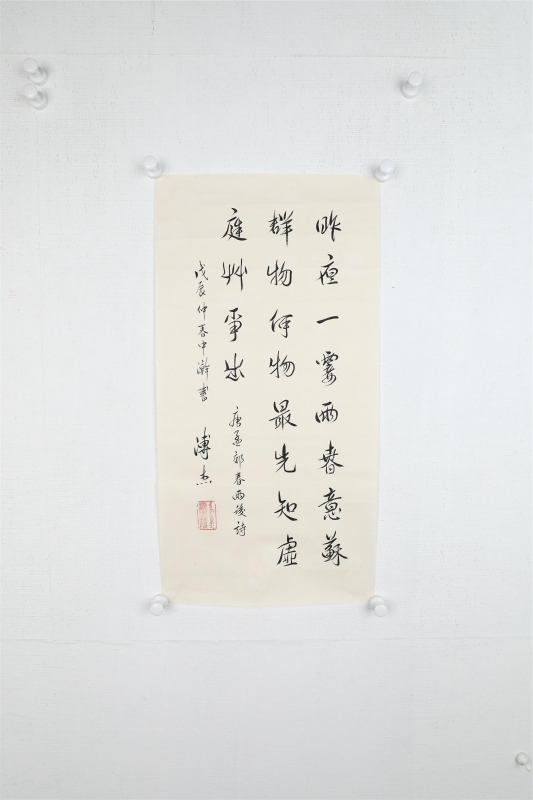 昨夜一霎雨春意蘇
群物何物最先知虛
庭艸爭出
唐孟郊春雨後詩
戊辰仲春中澣書
溥杰